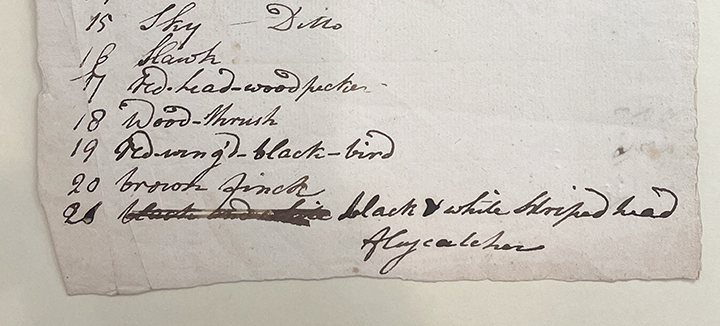 15 Sky — Ditto
16 Hawk
17 red-head-woodpecker
18 Wood-thrush
19 red-wing'd-black-bird
20 brown finch
21 black and white black & white striped head
flycatcher